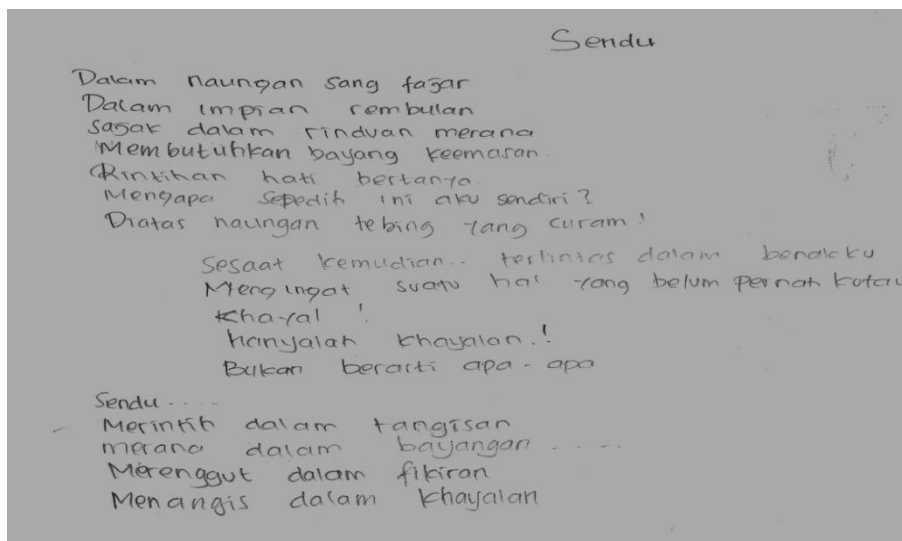 Sendu
Dalam naungan sang fajar
Dalam impian rembulan
Sajak dalam rinduan merana
Membutuhkan bayang keemasan.
Rintihan hati bertanya.
Mengapa sepedih ini aku sendiri?
Diatas naungan tebing yang curam!
Sesaat kemudian.. terlintas dalam benakku
Mengingat suatu hal yang belum pernah kutau
Khayal !
hanyalah khayalan.!
Bukan berarti apa-apa
Sendu.....
Merintih dalam tangisan
merana dalam bayangan .....
Merenggut dalam fikiran
Menangis dalam khayalan